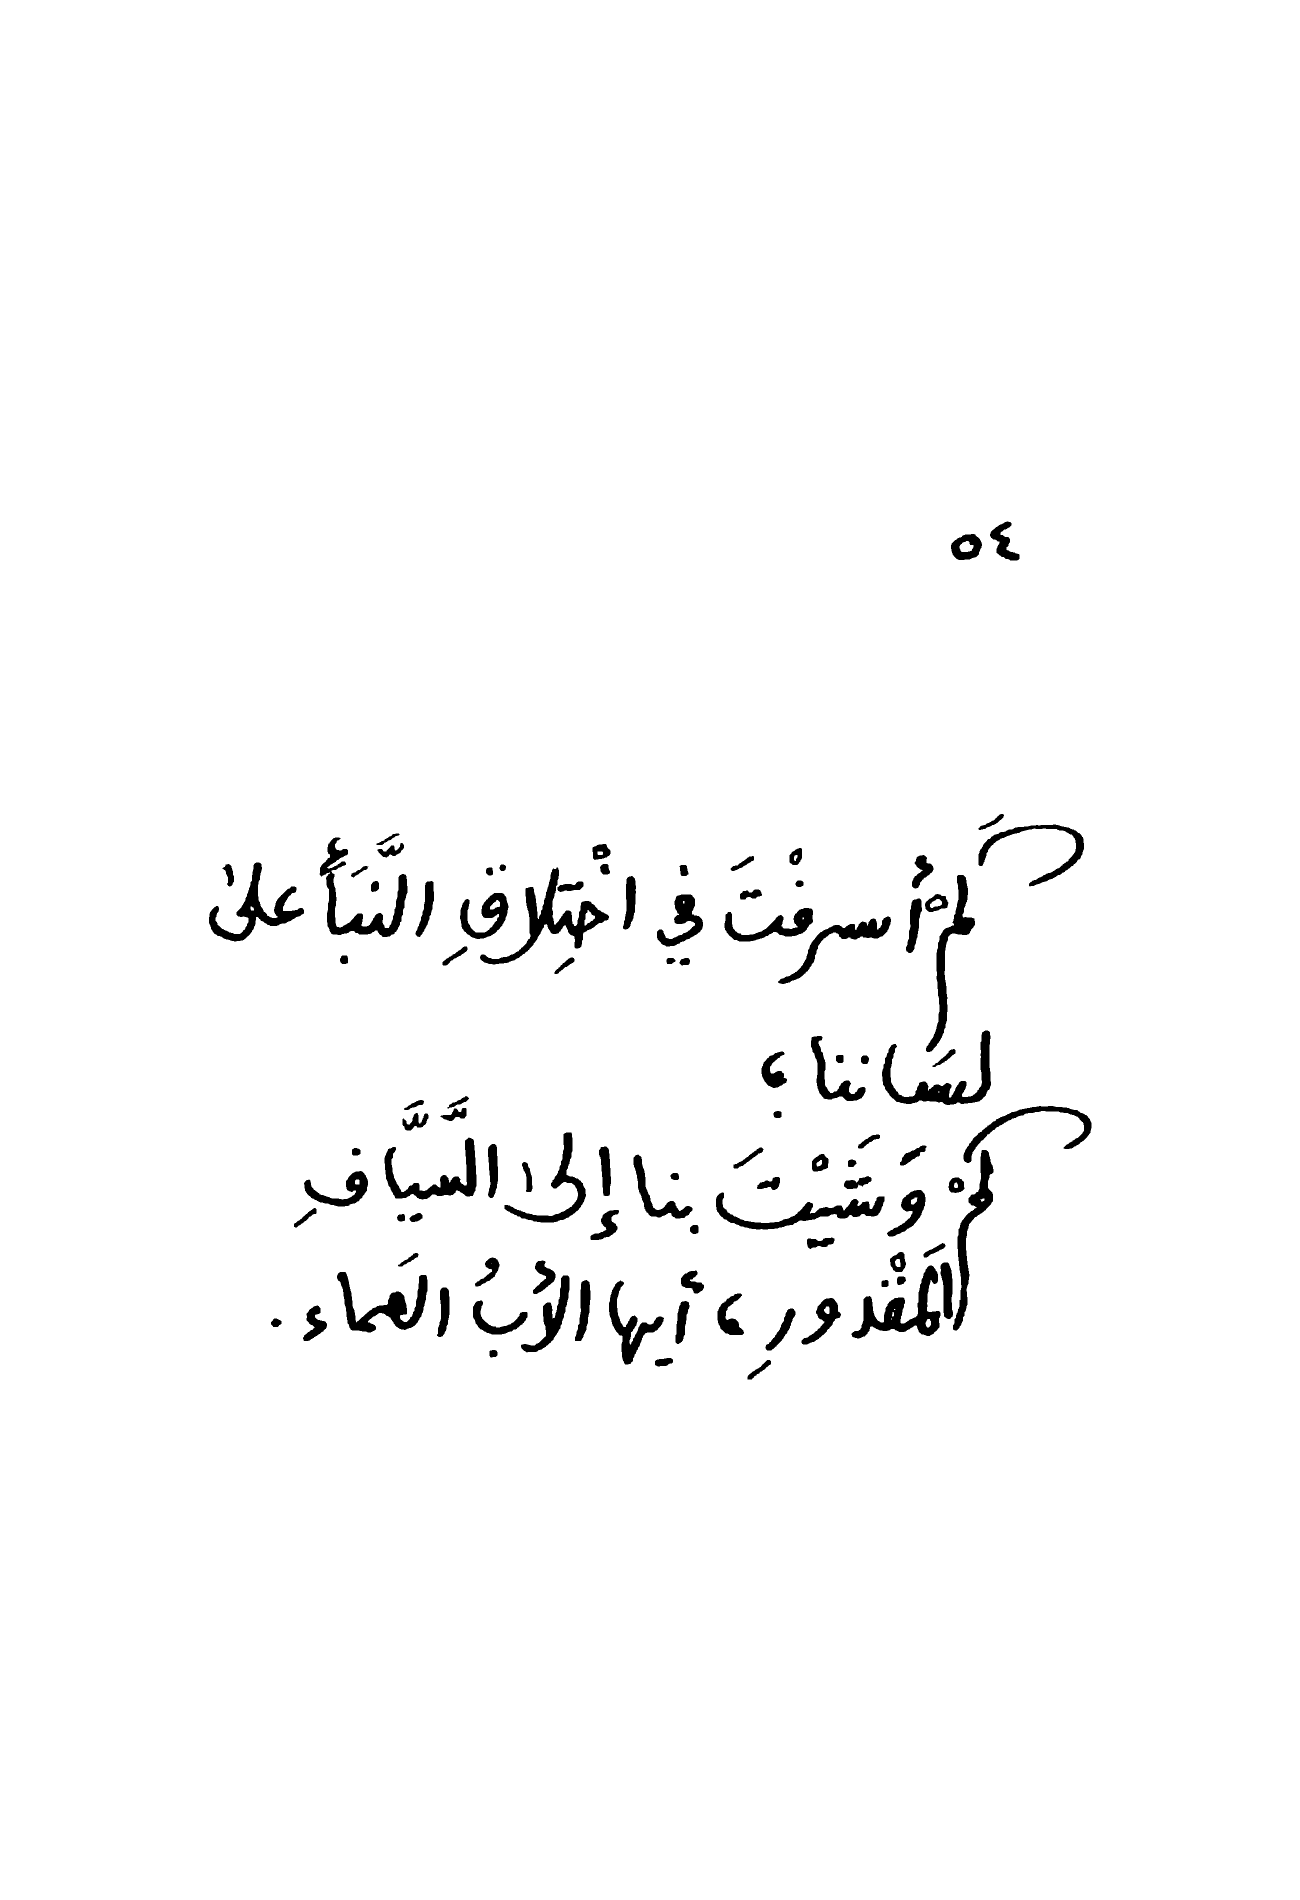 ٤٥
كَمْ أسرفْتَ في اخْتِلاقِ النَّبَأَ على
لسَاننا؛
كمْ وَشَيْتَ بنا إلى السَّيَّافِ
المَقْدورِ، أيها الأبُ العَماء.